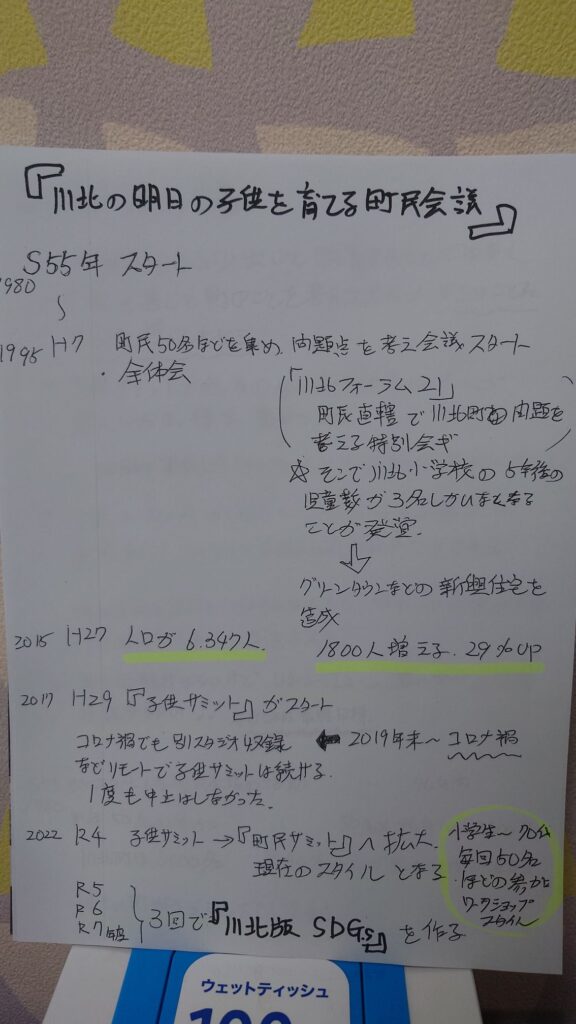 『川北の明日の子供を育てる町民会議』
S55年 スタート
1980
〜
1995 H7 町民50名ほどを集め、問題点を考え会議スタート
・全体会
「川北フォーラム21」
町民直轄で川北町の問題を
考える特別会ギ
☆ そこで川北小学校の5年後の
児童数が3名しかいなくなる
ことが発覚.
⇩
グリーンタウンなどの新興住宅を
造成
2015 H27 人口が6.347人.
1800人増える. 29%UP
2017 H29 『子供サミット』がスタート
コロナ禍でも別スタジオ収録 ← 2019年末〜コロナ禍
などリモートで子供サミットは続ける.
1度も中止はしなかった.
2022 R4 子供サミット→『町民サミット』へ拡大.
現在のスタイルとなる
小学生〜70代
毎回50名
ほどの参加
ワークショップ
スタイル
R5
R6
R7年度
} 3回で『川北版 SDGs』を作る
ウェットティッシュ
100